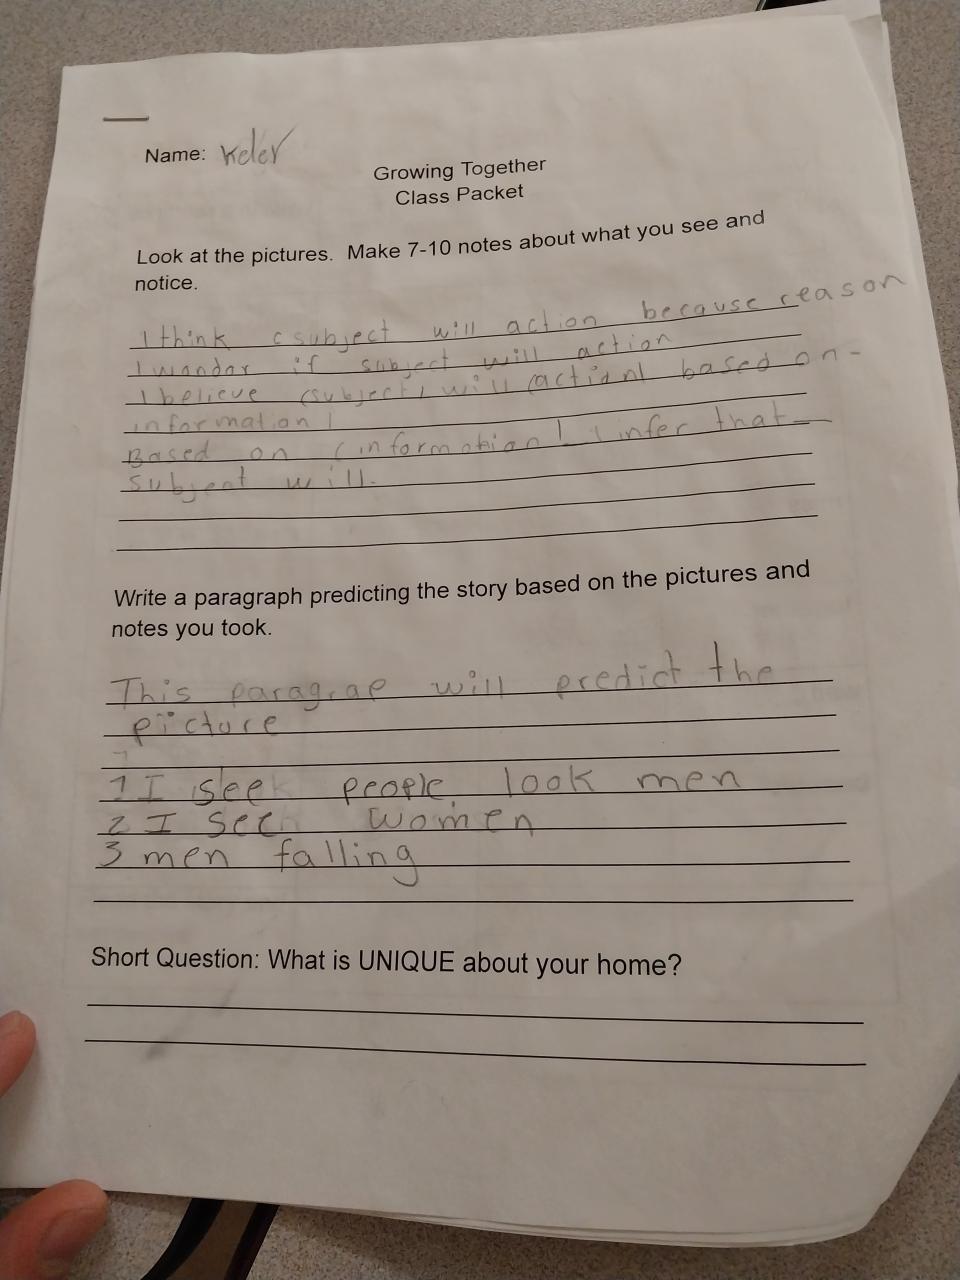 Name: Keler
Growing Together
Class Packet
Look at the pictures. Make 7-10 notes about what you see and
notice.
I think (subject will action because reason
I wondar if subject will action
I believe (subject) will (action) based on-
information)
Based on (information) I infer that
subject will.
Write a paragraph predicting the story based on the pictures and
notes you took.
This paragrae will predict the
picture
1 I see people, look men
2 I see women
3 men falling
Short Question: What is UNIQUE about your home?